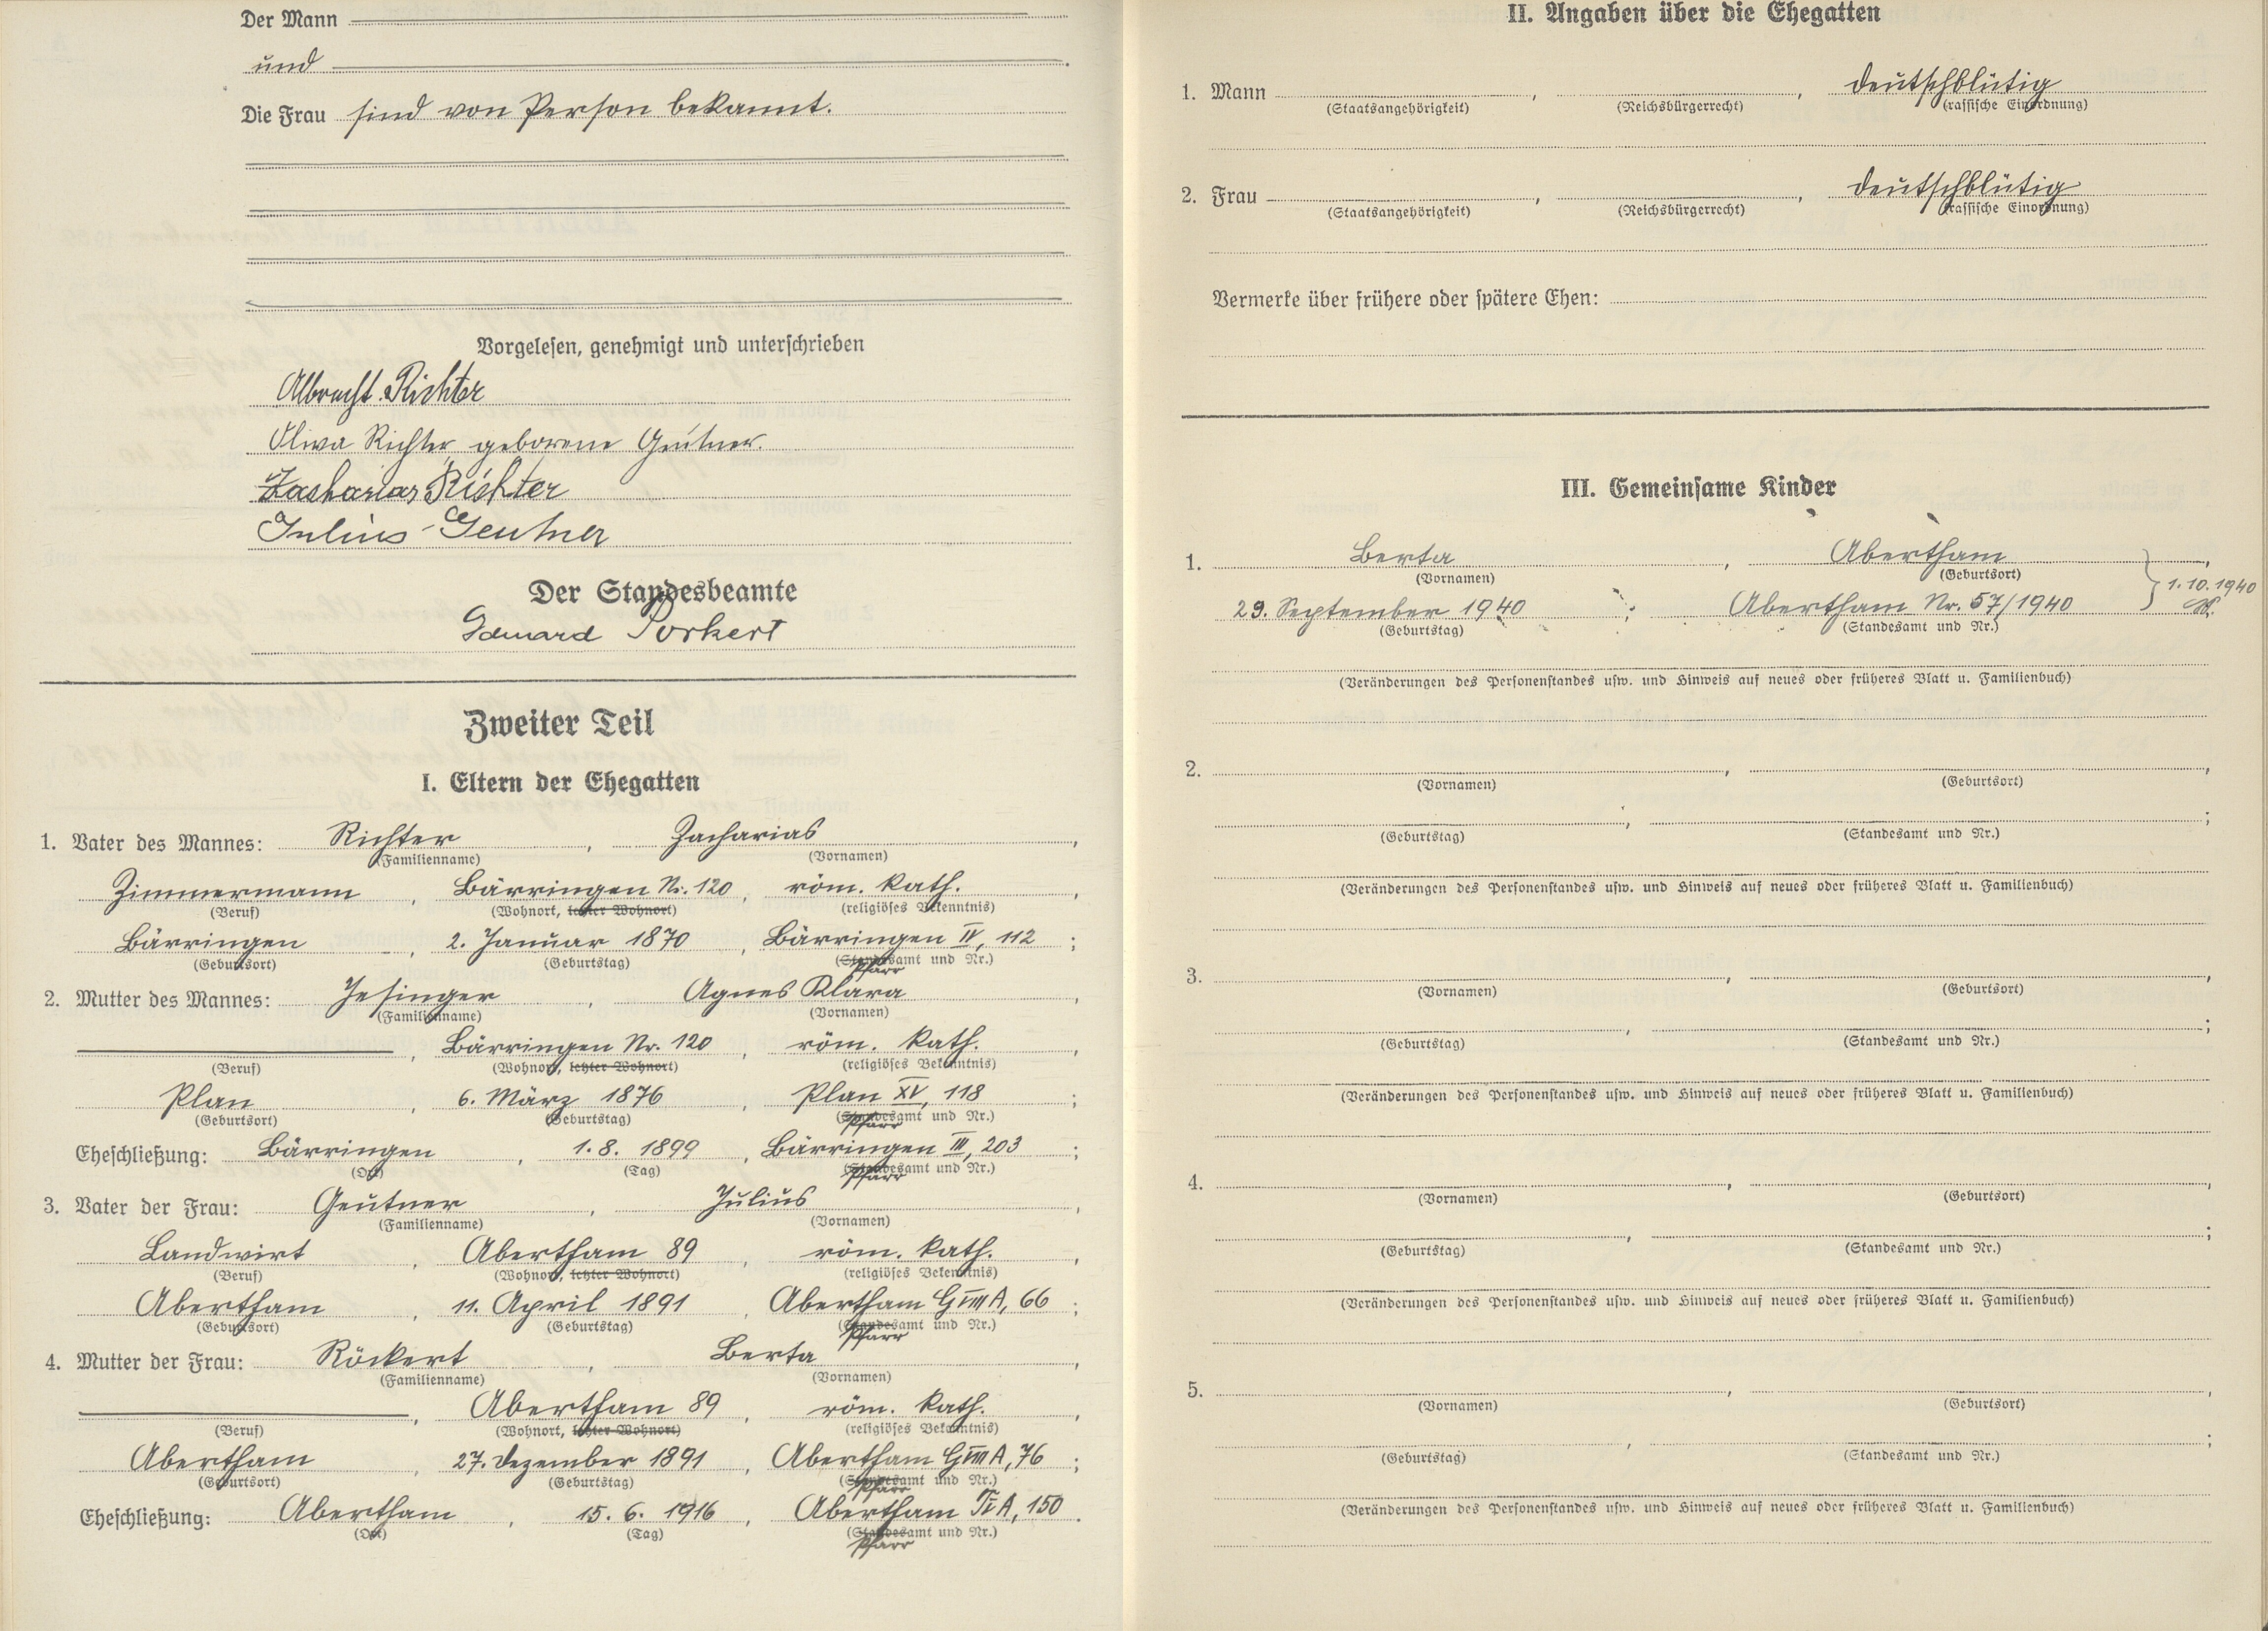 Der Mann
und
Die Frau sind von Person bekannt.
Vorgelesen, genehmigt und unterschrieben
Albrecht Richter
Oliva Richter, geborene Geutner.
Zacharias Richter
Julius Geutner
Der Standesbeamte
Eduard Porkert
Zweiter Teil
I. Eltern der Ehegatten
1. Vater des Mannes: Richter, Zacharias,
(Familienname) (Vornamen)
Zimmermann, Bärringen Nr. 120, röm. kath.,
(Beruf) (Wohnort, letzter Wohnort) (religiöses Bekenntnis)
Bärringen, 2. Januar 1870, Bärringen IV, 112;
(Geburtsort) (Geburtstag) (Standesamt und Nr.)
Pfarr
2. Mutter des Mannes: Jesinger, Agnes Klara,
(Familienname) (Vornamen)
, Bärringen Nr. 120, röm. kath.,
(Beruf) (Wohnort, letzter Wohnort) (religiöses Bekenntnis)
Plan, 6. März 1876, Plan XV, 118;
(Geburtsort) (Geburtstag) (Standesamt und Nr.)
Pfarr
Eheschließung: Bärringen, 1. 8. 1899, Bärringen III, 203;
(Ort) (Tag) (Standesamt und Nr.)
Pfarr
3. Vater der Frau: Geutner, Julius,
(Familienname) (Vornamen)
Landwirt, Abertham 89, röm. kath.,
(Beruf) (Wohnort, letzter Wohnort) (religiöses Bekenntnis)
Abertham, 11. April 1891, Abertham G VIII A, 66;
(Geburtsort) (Geburtstag) (Standesamt und Nr.)
Pfarr
4. Mutter der Frau: Röckert, Berta,
(Familienname) (Vornamen)
, Abertham 89, röm. kath.,
(Beruf) (Wohnort, letzter Wohnort) (religiöses Bekenntnis)
Abertham, 27. Dezember 1891, Abertham G VIII A, 76;
(Geburtsort) (Geburtstag) (Standesamt und Nr.)
Pfarr
Eheschließung: Abertham, 15. 6. 1916, Abertham A, 150.
(Ort) (Tag) (Standesamt und Nr.)
Pfarr
II. Angaben über die Ehegatten
1. Mann , , deutschblütig
(Staatsangehörigkeit) (Reichsbürgerrecht) (rassische Einordnung)
2. Frau , , deutschblütig
(Staatsangehörigkeit) (Reichsbürgerrecht) (rassische Einordnung)
Vermerke über frühere oder spätere Ehen:
III. Gemeinsame Kinder
1. Berta, Abertham,
(Vornamen) (Geburtsort)
1. 10. 1940
29. September 1940; Abertham Nr. 57/1940
(Geburtstag) (Standesamt und Nr.)
(Veränderungen des Personenstandes usw. und Hinweis auf neues oder früheres Blatt u. Familienbuch)
2. , ,
(Vornamen) (Geburtsort)
, ;
(Geburtstag) (Standesamt und Nr.)
(Veränderungen des Personenstandes usw. und Hinweis auf neues oder früheres Blatt u. Familienbuch)
3. , ,
(Vornamen) (Geburtsort)
, ;
(Geburtstag) (Standesamt und Nr.)
(Veränderungen des Personenstandes usw. und Hinweis auf neues oder früheres Blatt u. Familienbuch)
4. , ,
(Vornamen) (Geburtsort)
, ;
(Geburtstag) (Standesamt und Nr.)
(Veränderungen des Personenstandes usw. und Hinweis auf neues oder früheres Blatt u. Familienbuch)
5. , ,
(Vornamen) (Geburtsort)
, ;
(Geburtstag) (Standesamt und Nr.)
(Veränderungen des Personenstandes usw. und Hinweis auf neues oder früheres Blatt u. Familienbuch)